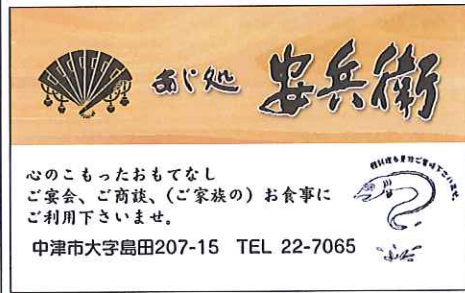 あじ処 安兵衛
心のこもったおもてなし
ご宴会、ご商談、(ご家族の) お食事に
ご利用下さいませ。
中津市大字島田207-15 TEL 22-7065